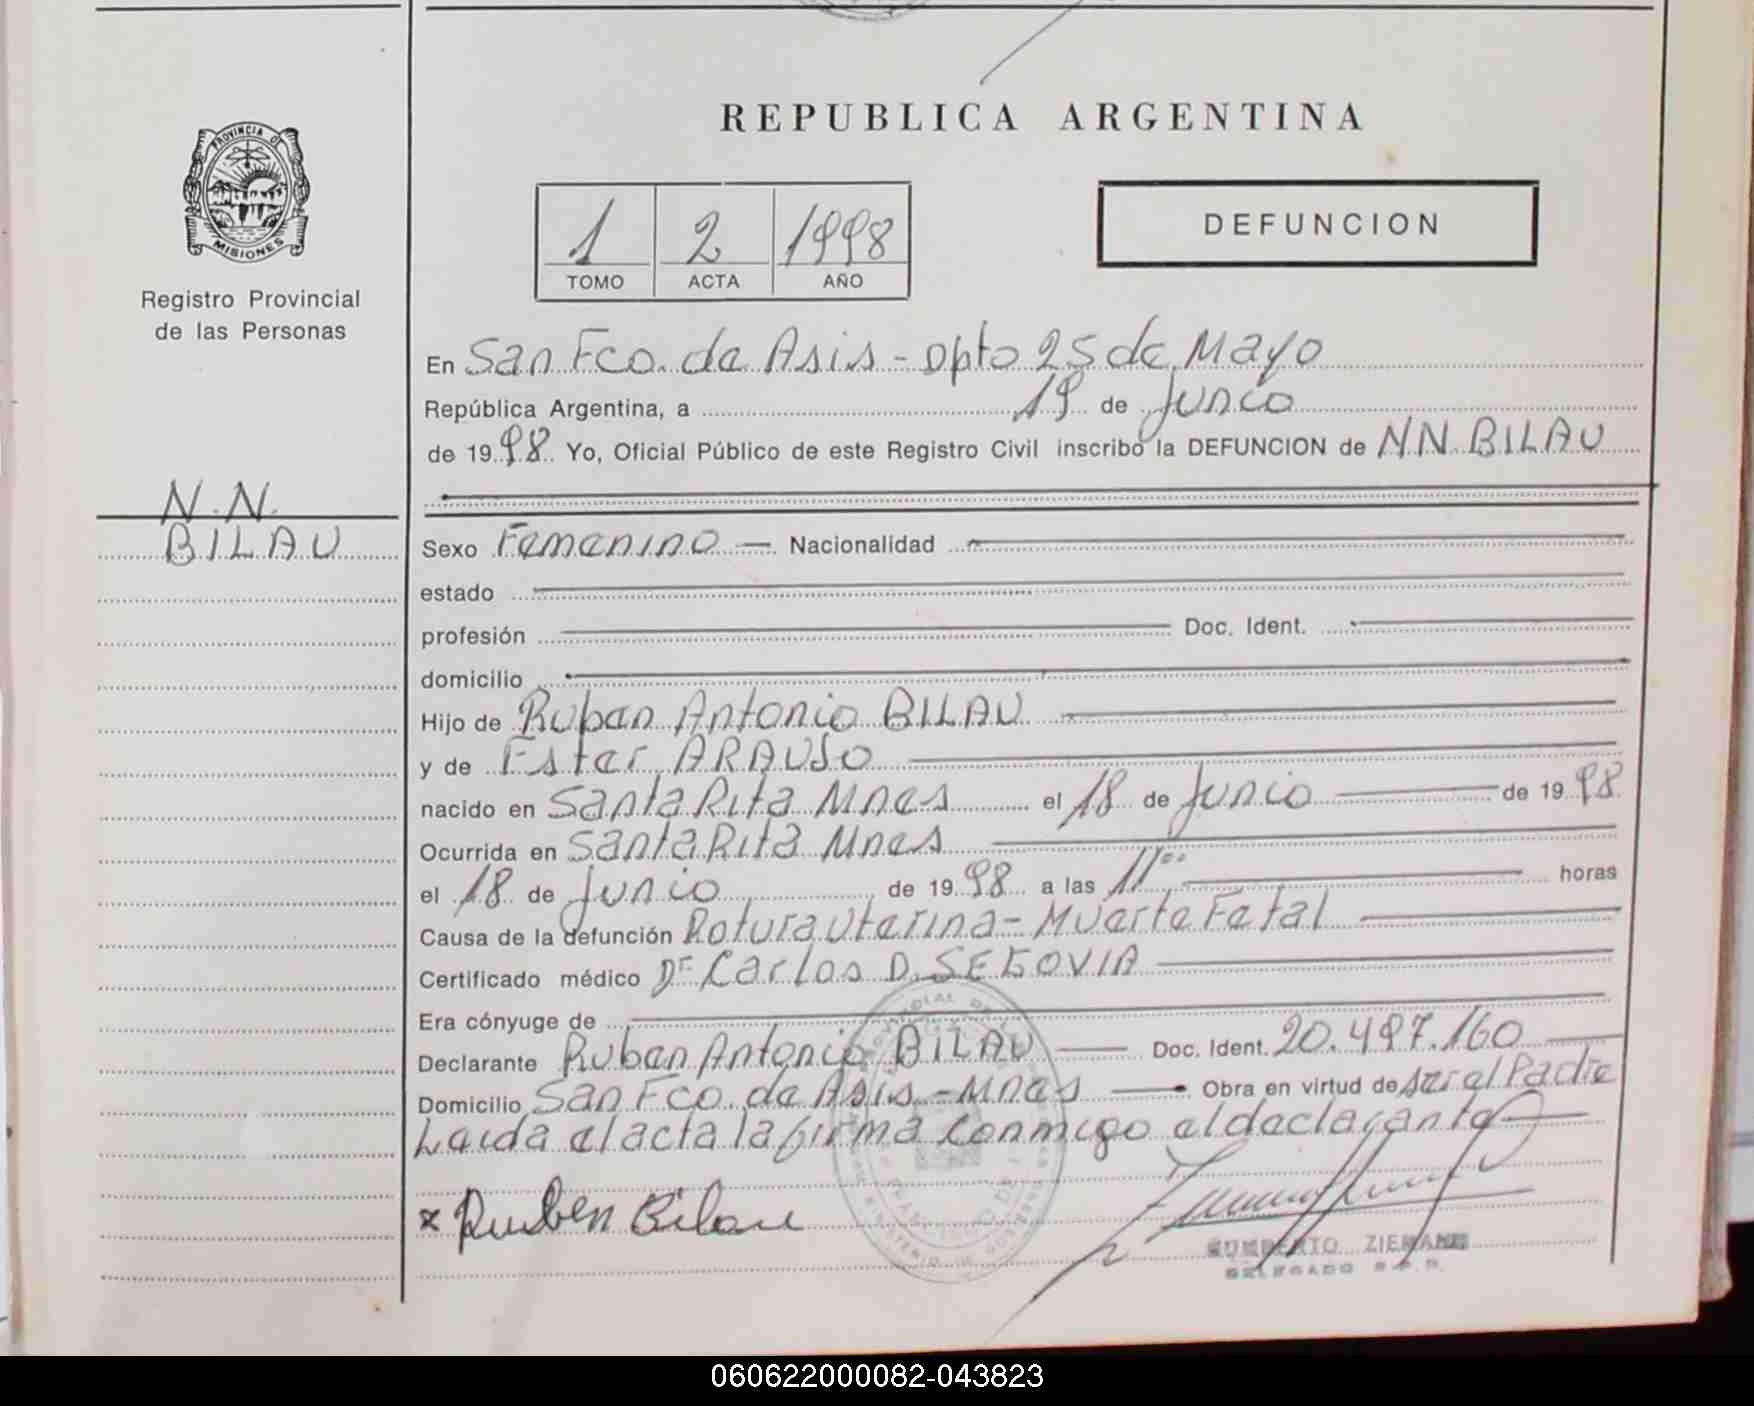 REPUBLICA ARGENTINA
PROVINCIA DE
MISIONES
Registro Provincial
de las Personas
1 2 1998
TOMO ACTA AÑO
DEFUNCION
N.N.
BILAU
En San Fco. de Asis - Dpto 25 de Mayo
República Argentina, a 19 de Junio
de 1998 Yo, Oficial Público de este Registro Civil inscribo la DEFUNCION de NN BILAU
Sexo Femenino Nacionalidad
estado
profesión Doc. Ident.
domicilio
Hijo de Ruben Antonio BILAU
y de Ester ARAUJO
nacido en Santa Rita Mnes el 18 de Junio de 1998
Ocurrida en Santa Rita Mnes
el 18 de Junio de 1998 a las 11°° horas
Causa de la defunción Rotura uterina - Muerte Fetal
Certificado médico Dr Carlos D. SEGOVIA
Era cónyuge de
Declarante Ruben Antonio BILAU Doc. Ident. 20.497.160
Domicilio San Fco. de Asis - Mnes Obra en virtud de ser el Padre
Leida el acta la firma conmigo el declarante
x Ruben Bilau
HUMBERTO ZIEMANN
DELEGADO R.P.P.
060622000082-043823